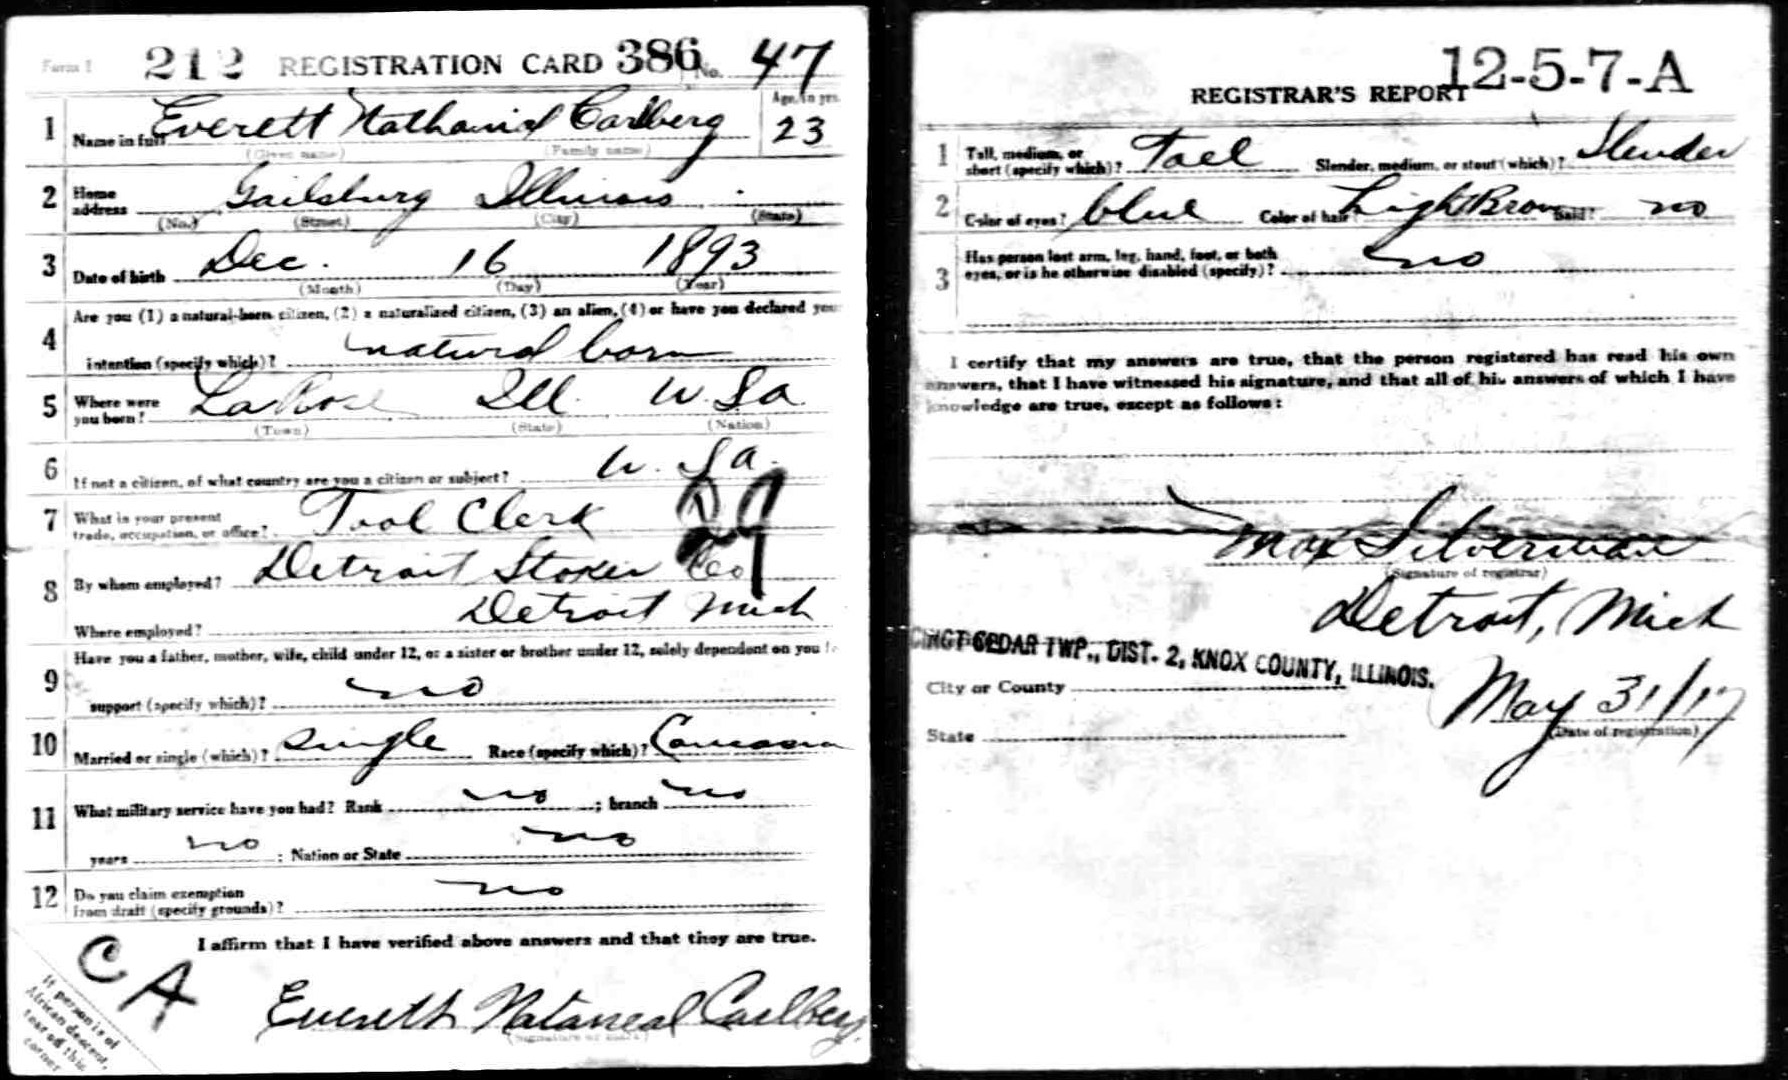 Form 1 212 REGISTRATION CARD 386 No. 47
1 Name in full Everett Nathanial Carlberg Age, in yrs. 23
(Given name) (Family name)
2 Home address Gailsburg Illinois
(No.) (Street) (City) (State)
3 Date of birth Dec. 16 1893
(Month) (Day) (Year)
4 Are you (1) a natural-born citizen, (2) a naturalized citizen, (3) an alien, (4) or have you declared your
intention (specify which)? natural born
5 Where were you born? LaRose Ill. U.Sa
(Town) (State) (Nation)
6 If not a citizen, of what country are you a citizen or subject? U. Sa.
7 What is your present trade, occupation, or office? Tool Clerk
8 By whom employed? Detroit Stoker Co
Where employed? Detroit Mich
9 Have you a father, mother, wife, child under 12, or a sister or brother under 12, solely dependent on you for
support (specify which)? no
10 Married or single (which)? Single Race (specify which)? Caucasian
11 What military service have you had? Rank no ; branch no
years no ; Nation or State no
12 Do you claim exemption from draft (specify grounds)? no
I affirm that I have verified above answers and that they are true.
C A
Everett Nataneal Carlberg
(Signature or mark)
If person is of
African descent,
tear off this
corner
12-5-7-A
REGISTRAR'S REPORT
1 Tall, medium, or short (specify which)? Tall Slender, medium, or stout (which)? Slender
2 Color of eyes? blue Color of hair? Light Brown Bald? no
3 Has person lost arm, leg, hand, foot, or both
eyes, or is he otherwise disabled (specify)? no
I certify that my answers are true, that the person registered has read his own
answers, that I have witnessed his signature, and that all of his answers of which I have
knowledge are true, except as follows:
Max Silverman
(Signature of registrar)
Detroit, Mich
CEDAR TWP., DIST. 2, KNOX COUNTY, ILLINOIS.
City or County
May 31/17
State
(Date of registration)